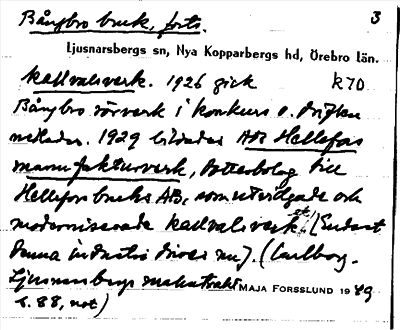 Bångbro bruk, forts. 3
Ljusnarsbergs sn, Nya Kopparbergs hd, Örebro län.
kallvalsverk. 1926 gick K70
Bångbro rörverk i konkurs o. driften
nedlades. 1929 bildades AB Hellefors
manufakturverk, dotterbolag till
Hellefors bruks AB, som utvidgade och
moderniserade kallvalsverket. (Endast
denna industri drives nu). (Carlborg.
Ljusnarsbergs malmtrakt
MAJA FORSSLUND 1949
s. 88, not)